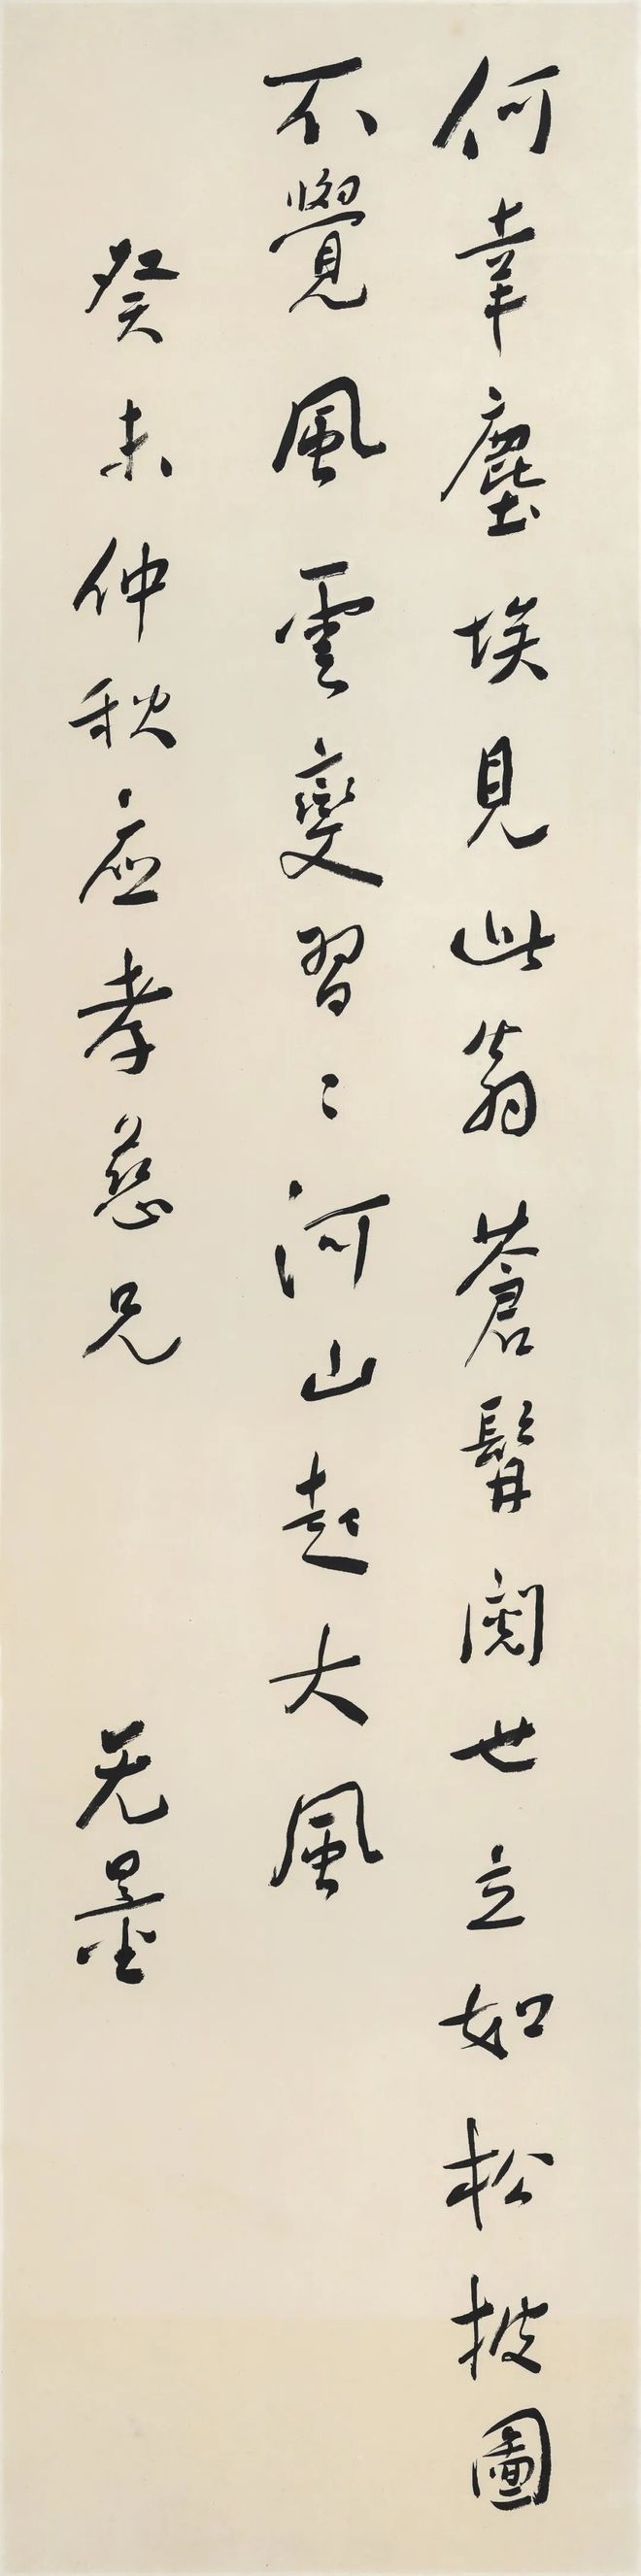 何幸塵埃見此翁蒼髯閱世立如松披圖
不覺風雲變習〻河山起大風
癸未仲秋应孝慈兄　无量